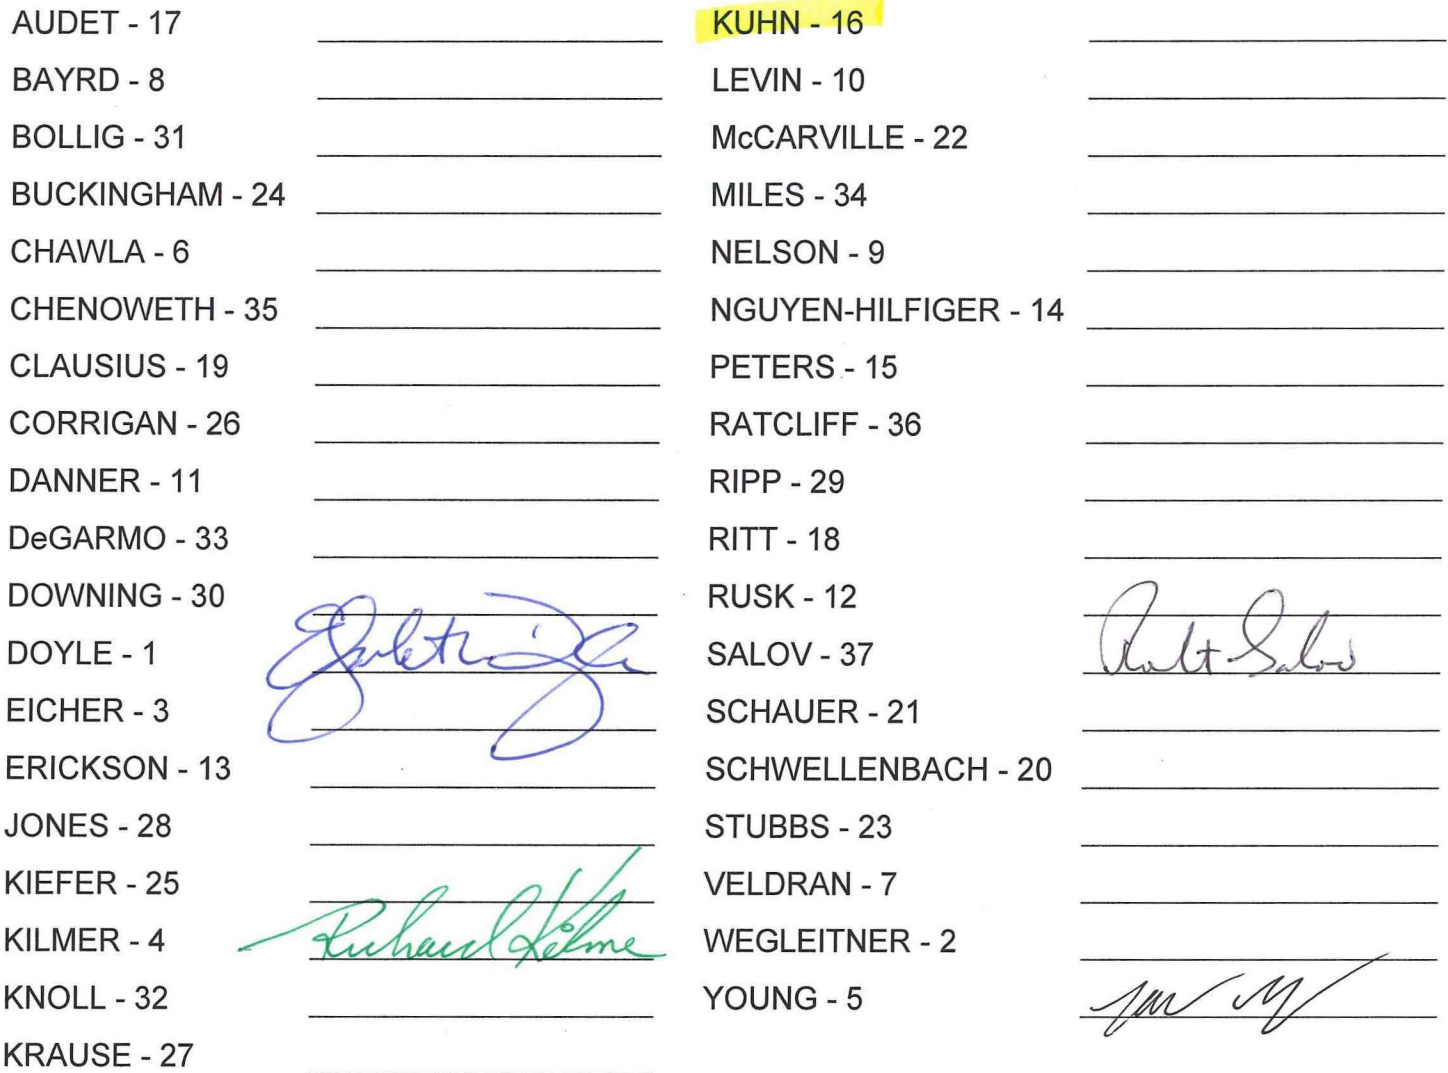 AUDET - 17
BAYRD - 8
BOLLIG - 31
BUCKINGHAM - 24
CHAWLA - 6
CHENOWETH - 35
CLAUSIUS - 19
CORRIGAN - 26
DANNER - 11
DeGARMO - 33
DOWNING - 30
DOYLE - 1
EICHER - 3
ERICKSON - 13
JONES - 28
KIEFER - 25
KILMER - 4 Richard Kilme
KNOLL - 32
KRAUSE - 27
KUHN - 16
LEVIN - 10
McCARVILLE - 22
MILES - 34
NELSON - 9
NGUYEN-HILFIGER - 14
PETERS - 15
RATCLIFF - 36
RIPP - 29
RITT - 18
RUSK - 12
SALOV - 37 Salov
SCHAUER - 21
SCHWELLENBACH - 20
STUBBS - 23
VELDRAN - 7
WEGLEITNER - 2
YOUNG - 5